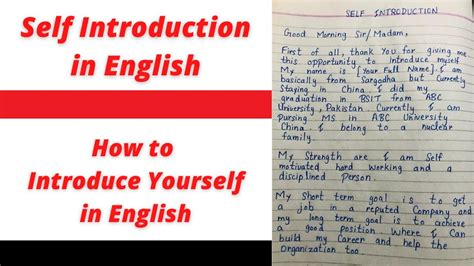 Self Introduction
in English
How to
Introduce Yourself
in English
SELF INTRODUCTION
Good Morning Sir/Madam,
First of all, thank You for giving me
this opportunity to introduce myself
My name is [Your Full Name]. I am
basically from Sargodha but Currently
Staying in China. I did my
graduation in BSIT from ABC
University, Pakistan. Currently I am
pursing MS in ABC University
China. I belong to a nuclear
family.
My Strength are I am Self
motivated hard working and a
disciplined Person.
My Short term goal is to get
a job in a reputed Company and
my long term goal is to achieve
a good position. Where I Can
build my Career and help the
Organization too.